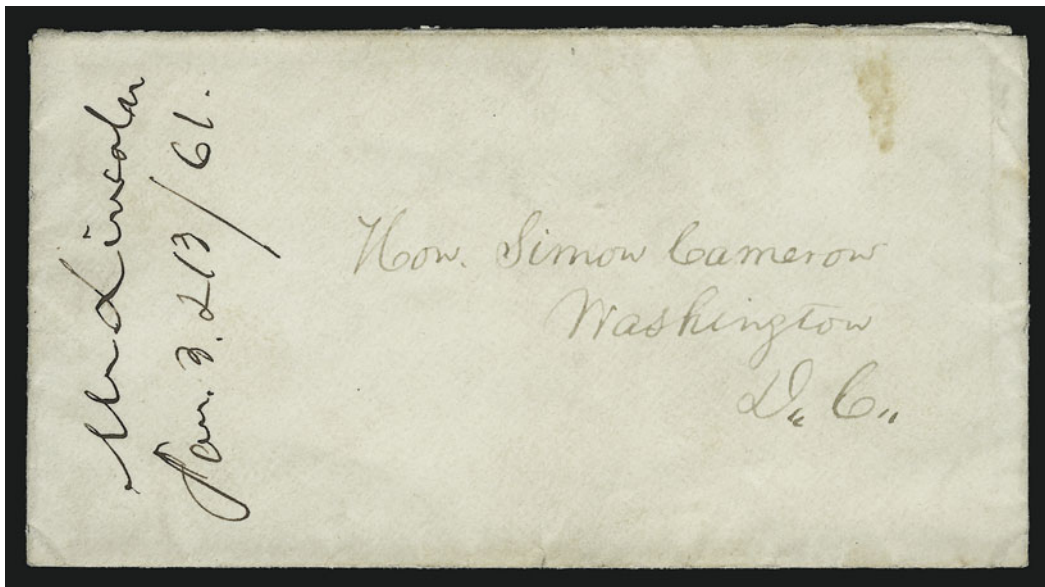 Mr Lincoln
Jan. 3. & 13/61.
Hon. Simon Cameron
Washington
D. C.